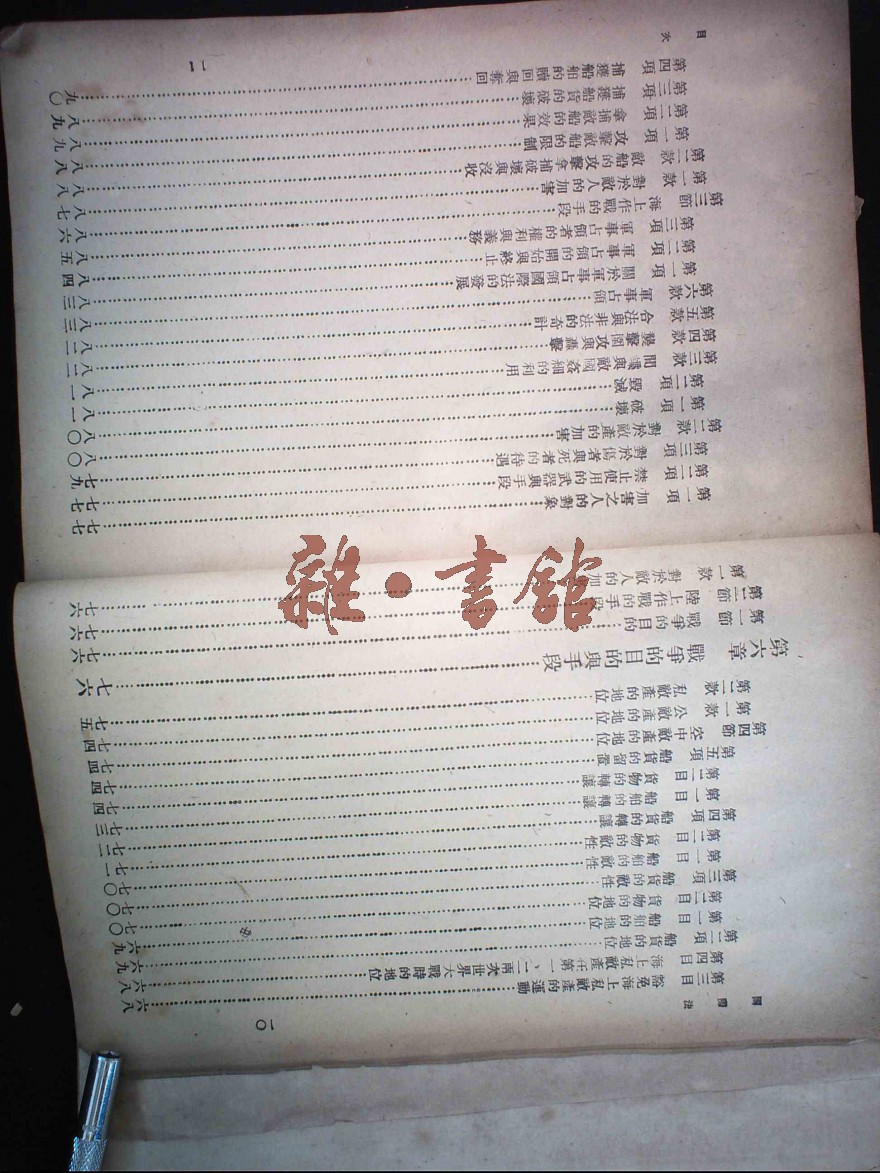 國際法
一〇
第三目 豁免海上私敵產的運動……六八
第四目 海上私敵產在第一、二兩次世界大戰時的地位……六八
第二項 船貨的地位……六九
第一目 船舶的地位……六九
第二目 貨物的地位……七〇
第三項 船貨的敵性……七〇
第一目 船舶的敵性……七〇
第二目 貨物的敵性……七一
第四項 船貨的轉讓……七二
第一目 船舶的轉讓……七三
第二目 貨物的轉讓……七四
第五項 船貨的留置……七四
第四節 空中敵產的地位……七四
第一款 公敵產的地位……七四
第二款 私敵產的地位……七五
第六章 戰爭的目的與手段……七六
第一節 戰爭的目的……七六
第二節 陸上作戰的手段……七六
第一款 對於敵人的加……七六
第一項 加害之人的對象……七七
第二項 禁止使用的武器與手段……七七
第三項 對於傷者與死者的待遇……七九
第二款 對於敵產的加害……八〇
第一項 破壞……八〇
第二項 毀滅……八一
第三款 間諜與敵國姦細的利用……八一
第四款 襲擊圍攻與轟擊……八二
第五款 合法與非法的奇計……八二
第六款 軍事占領……八三
第一項 關於軍事占領國際法的發展……八三
第二項 軍事占領的開始與終止……八四
第三項 軍事占領者的權利與義務……八五
第三節 海上作戰的手段……八六
第一款 對於敵人的加害……八七
第二款 敵船的攻擊拿捕破壞與沒收……八八
第一項 攻擊敵船的限制……八八
第二項 拿捕敵船的效果……八九
第三項 捕獲船貨的破壞……八九
第四項 捕獲船舶的贖回與奪回……九〇
目次
一一
雜·書館